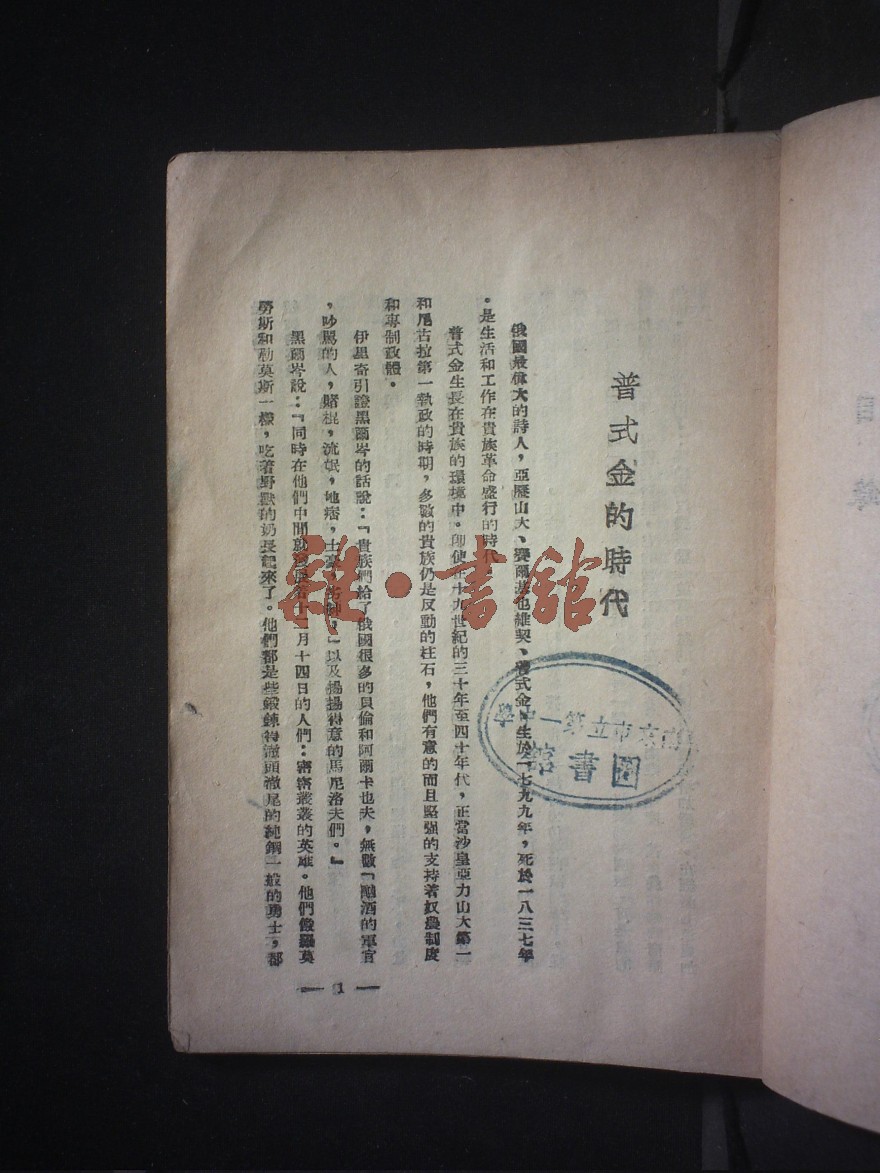 普式金的時代
俄國最偉大的詩人，亞歷山大、賽爾基也維契、普式金，生於一七九九年，死於一八三七年
。是生活和工作在貴族革命盛行的時代。
普式金生長在貴族的環境中。即使在十九世紀的三十年至四十年代，正當沙皇亞力山大第一
和尼古拉第一執政的時期，多數的貴族仍是反動的柱石，他們有意的而且堅强的支持着奴農制度
和專制政體。
伊里奇引證黑爾岑的話說：『貴族們給了俄國很多的貝倫和阿爾卡也夫，無數「酗酒的軍官
，吵罵的人，賭棍，流氓，地痞，土豪，劣紳，」以及揚揚得意的馬尼洛夫們。』
黑爾岑說：『同時在他們中間就發展着十二月十四日的人們：密密叢叢的英雄。他們像羅莫
勞斯和勒莫斯一樣，吃着野獸的奶長起來了。他們都是些鍛鍊得澈頭澈尾的純鋼一般的勇士，都
— 1 —
雜·書館
南京市立第一中學
圖書館
目
錄